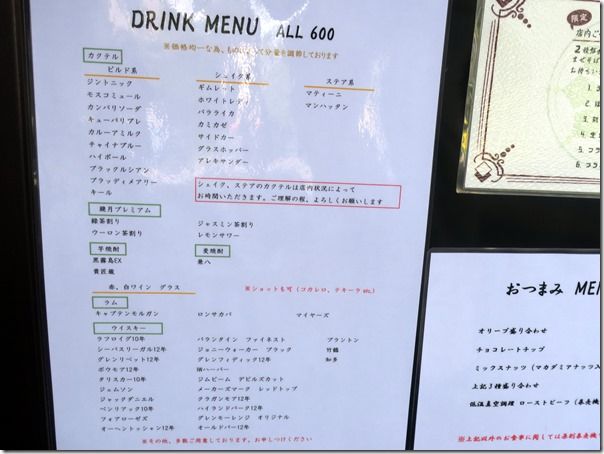 DRINK MENU ALL 600
※価格均一な為、ものによって分量を調節しております
カクテル
ビルド系
ジントニック
モスコミュール
カンパリソーダ
キューバリブレ
カルーアミルク
チャイナブルー
ハイボール
ブラックルシアン
ブラッディメアリー
キール
シェイク系
ギムレット
ホワイトレディ
バラライカ
カミカゼ
サイドカー
グラスホッパー
アレキサンダー
ステア系
マティーニ
マンハッタン
シェイク、ステアのカクテルは店内状況によって
お時間いただきます。ご理解の程、よろしくお願いします
鏡月プレミアム
緑茶割り ジャスミン茶割り
ウーロン茶割り レモンサワー
芋焼酎 麦焼酎
黒霧島EX 兼八
貴匠蔵
赤、白ワイン グラス ※ショットも可(コカレロ、テキーラ etc)
ラム
キャプテンモルガン ロンサカパ マイヤーズ
ウイスキー
ラフロイグ10年 バランタイン ファイネスト ブラントン
シーバスリーガル12年 ジョニーウォーカー ブラック 竹鶴
グレンリベット12年 グレンフィディック12年 知多
ボウモア12年 IWハーパー
タリスカー10年 ジムビーム デビルズカット
ジェムソン メーカーズマーク レッドトップ
ジャックダニエル クラガンモア12年
ベンリアック10年 ハイランドパーク12年
フォアローゼズ グレンモーレンジ オリジナル
オーヘントッシャン12年 オールドパー12年
※その他、多数ご用意しております。お申しつけください
限定
店内ご
2種類
まぜそば
お待ち
1.
2.
3.
4.
5.
6. コラ
おつまみ MEN
オリーブ盛り合わせ
チョコレートチップ
ミックスナッツ(マカダミアナッツ入
上記3種盛り合わせ
低温真空調理 ローストビーフ(
※上記以外のお食事に関しては